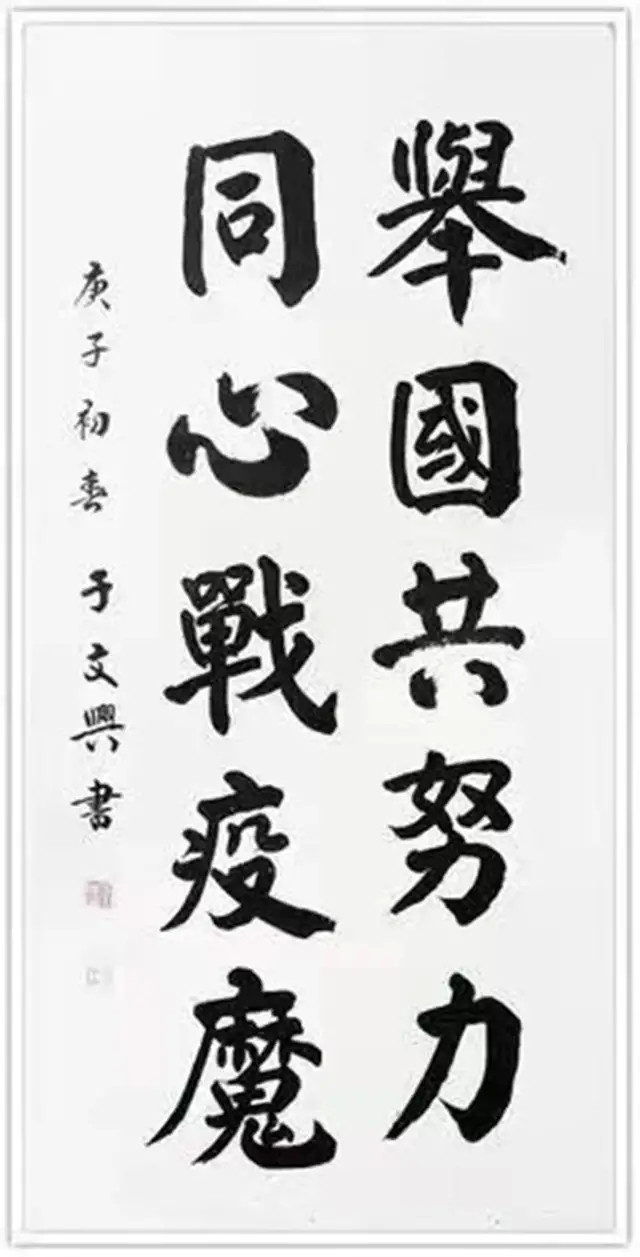 舉國共努力
同心戰疫魔
庚子初春 于文興書